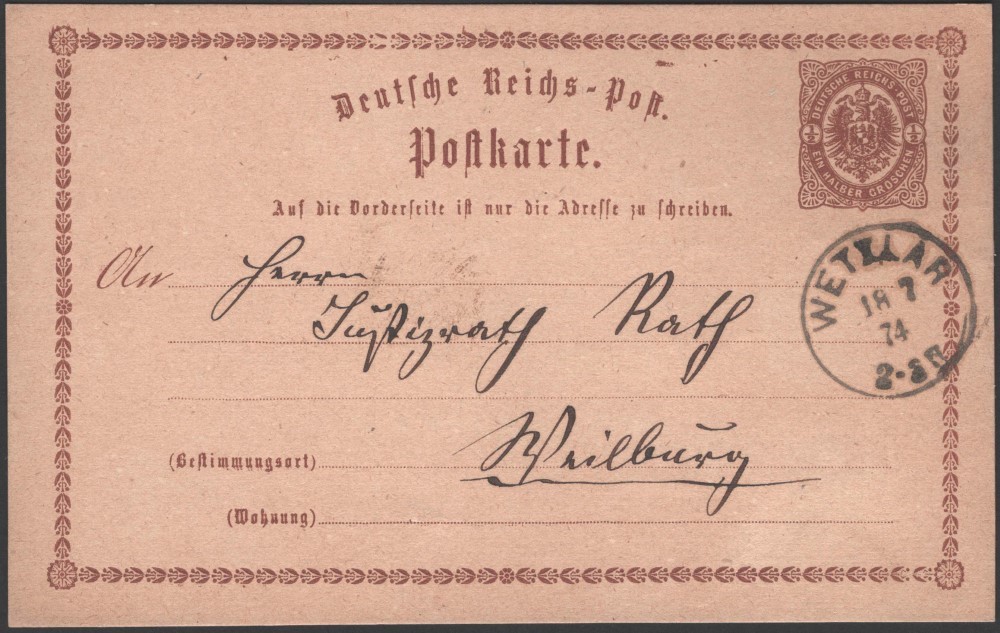 Deutsche Reichs-Post.
Postkarte.
DEUTSCHE REICHS-POST
½ ½
EIN HALBER GROSCHEN
Auf die Vorderseite ist nur die Adresse zu schreiben.
An Herrn
WETZLAR
18 7
74
2-3N
Justizrath Rath
(Bestimmungsort) Weilburg
(Wohnung)